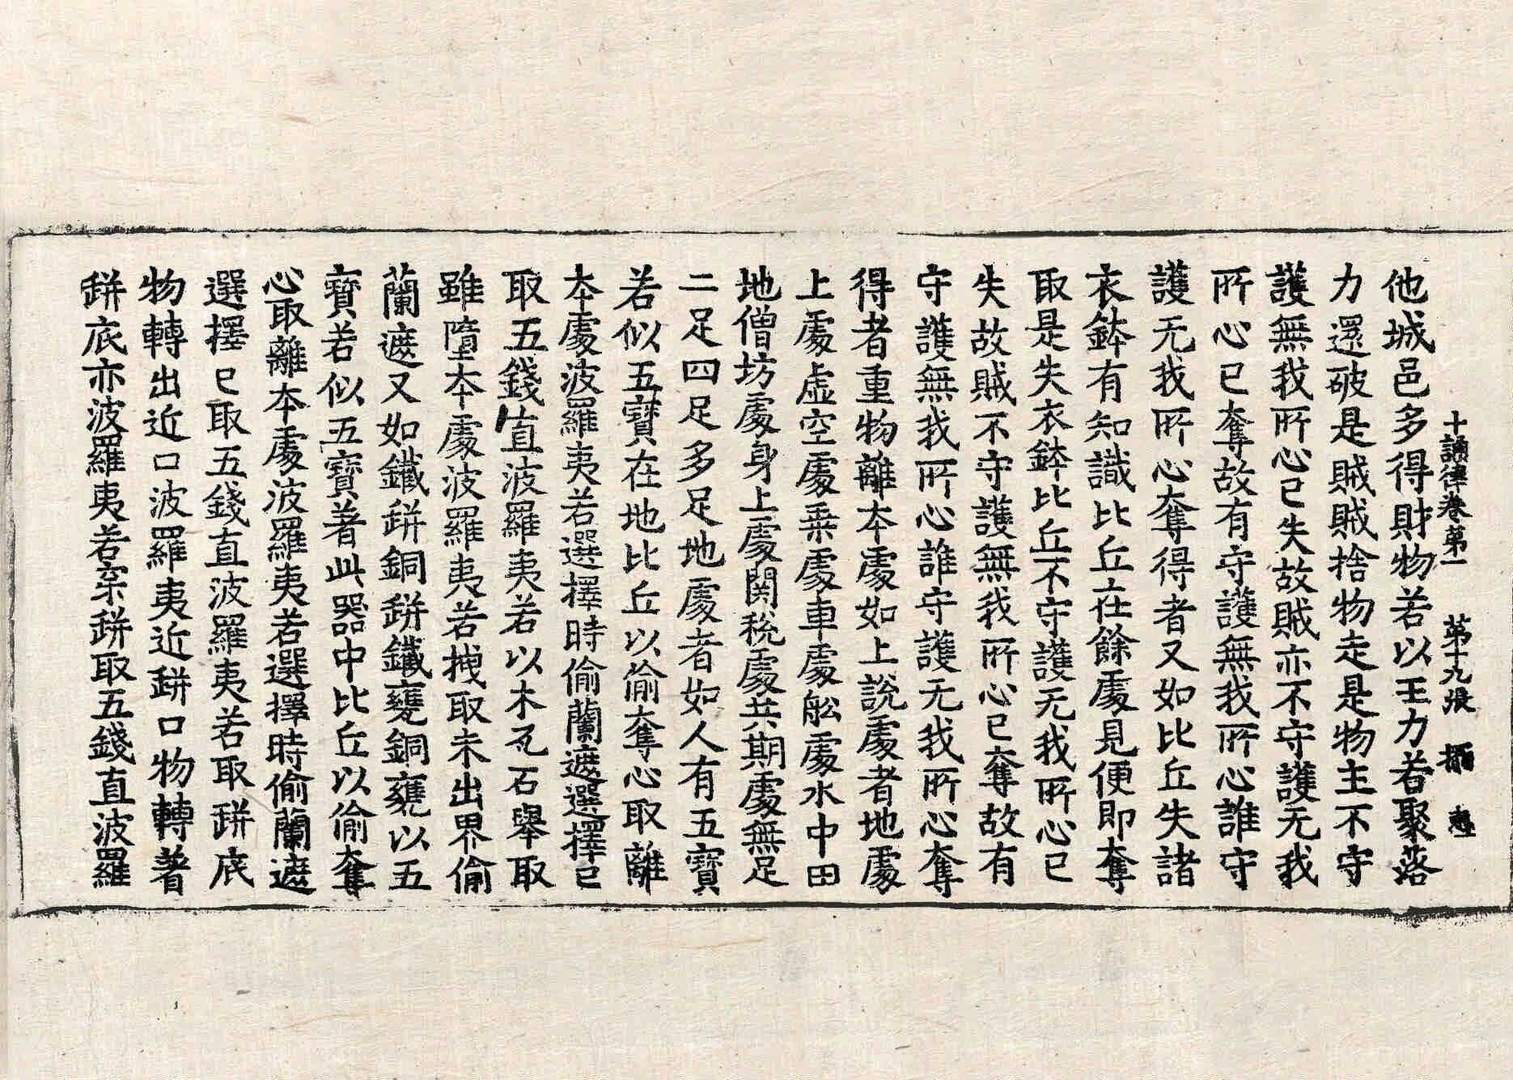 十誦律卷第一 第十九張 摛 惠
他城邑多得財物若以王力若聚落
力還破是賊賊捨物走是物主不守
護無我所心已失故賊亦不守護无我
所心已奪故有守護無我所心誰守
護无我所心奪得者又如比丘失諸
衣鉢有知識比丘在餘處見便即奪
取是失衣鉢比丘不守護无我所心已
失故賊不守護無我所心已奪故有
守護無我所心誰守護无我所心奪
得者重物離本處如上說處者地處
上處虛空處乘處車處舩處水中田
地僧坊處身上處関稅處共期處無足
二足四足多足地處者如人有五寶
若似五寶在地比丘以偷奪心取離
本處波羅夷若選擇時偷蘭遮選擇已
取五錢直波羅夷若以木瓦石舉取
雖墮本處波羅夷若拽取未出界偷
蘭遮又如鐵缾銅缾鐵甕銅甕以五
寶若似五寶著此器中比丘以偷奪
心取離本處波羅夷若選擇時偷蘭遮
選擇已取五錢直波羅夷若取缾底
物轉出近口波羅夷近缾口物轉著
缾底亦波羅夷若穿缾取五錢直波羅